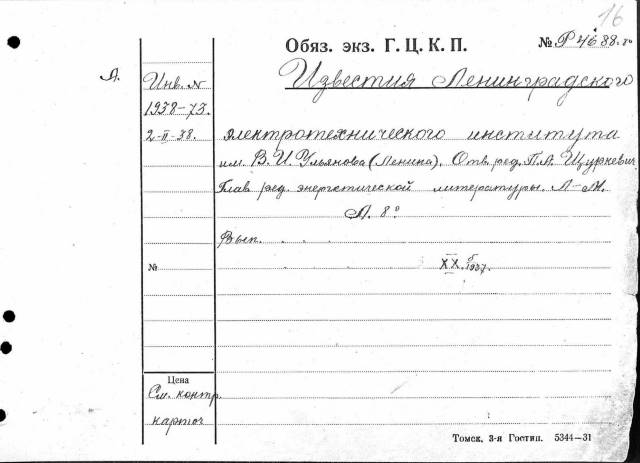 16
Обяз. экз. Г. Ц. К. П.
№ Р4688.
А.
Инв. N
Известия Ленинградского
1938-73.
2-II-38.
электротехнического института
им. В. И. Ульянова (Ленина). Отв. ред. П. А. Щуркевич.
Глав. ред. энергетической литературы. Л-М.
Л. 8°
Вып. . . .
№
XX. 1937.
Цена
См. контр.
карточ
Томск, 3-я Гостип. 5344—31